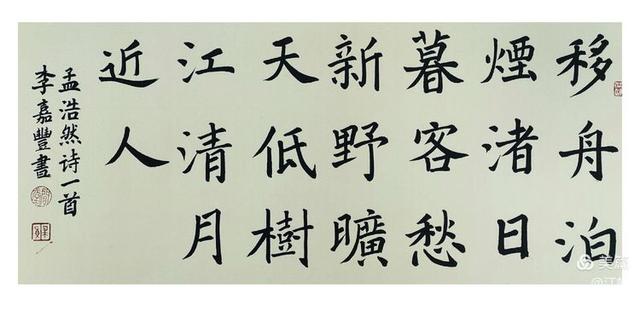 移舟泊
煙渚日
暮客愁
新野曠
天低樹
江清月
近人
孟浩然诗一首
李嘉豐書
美篇